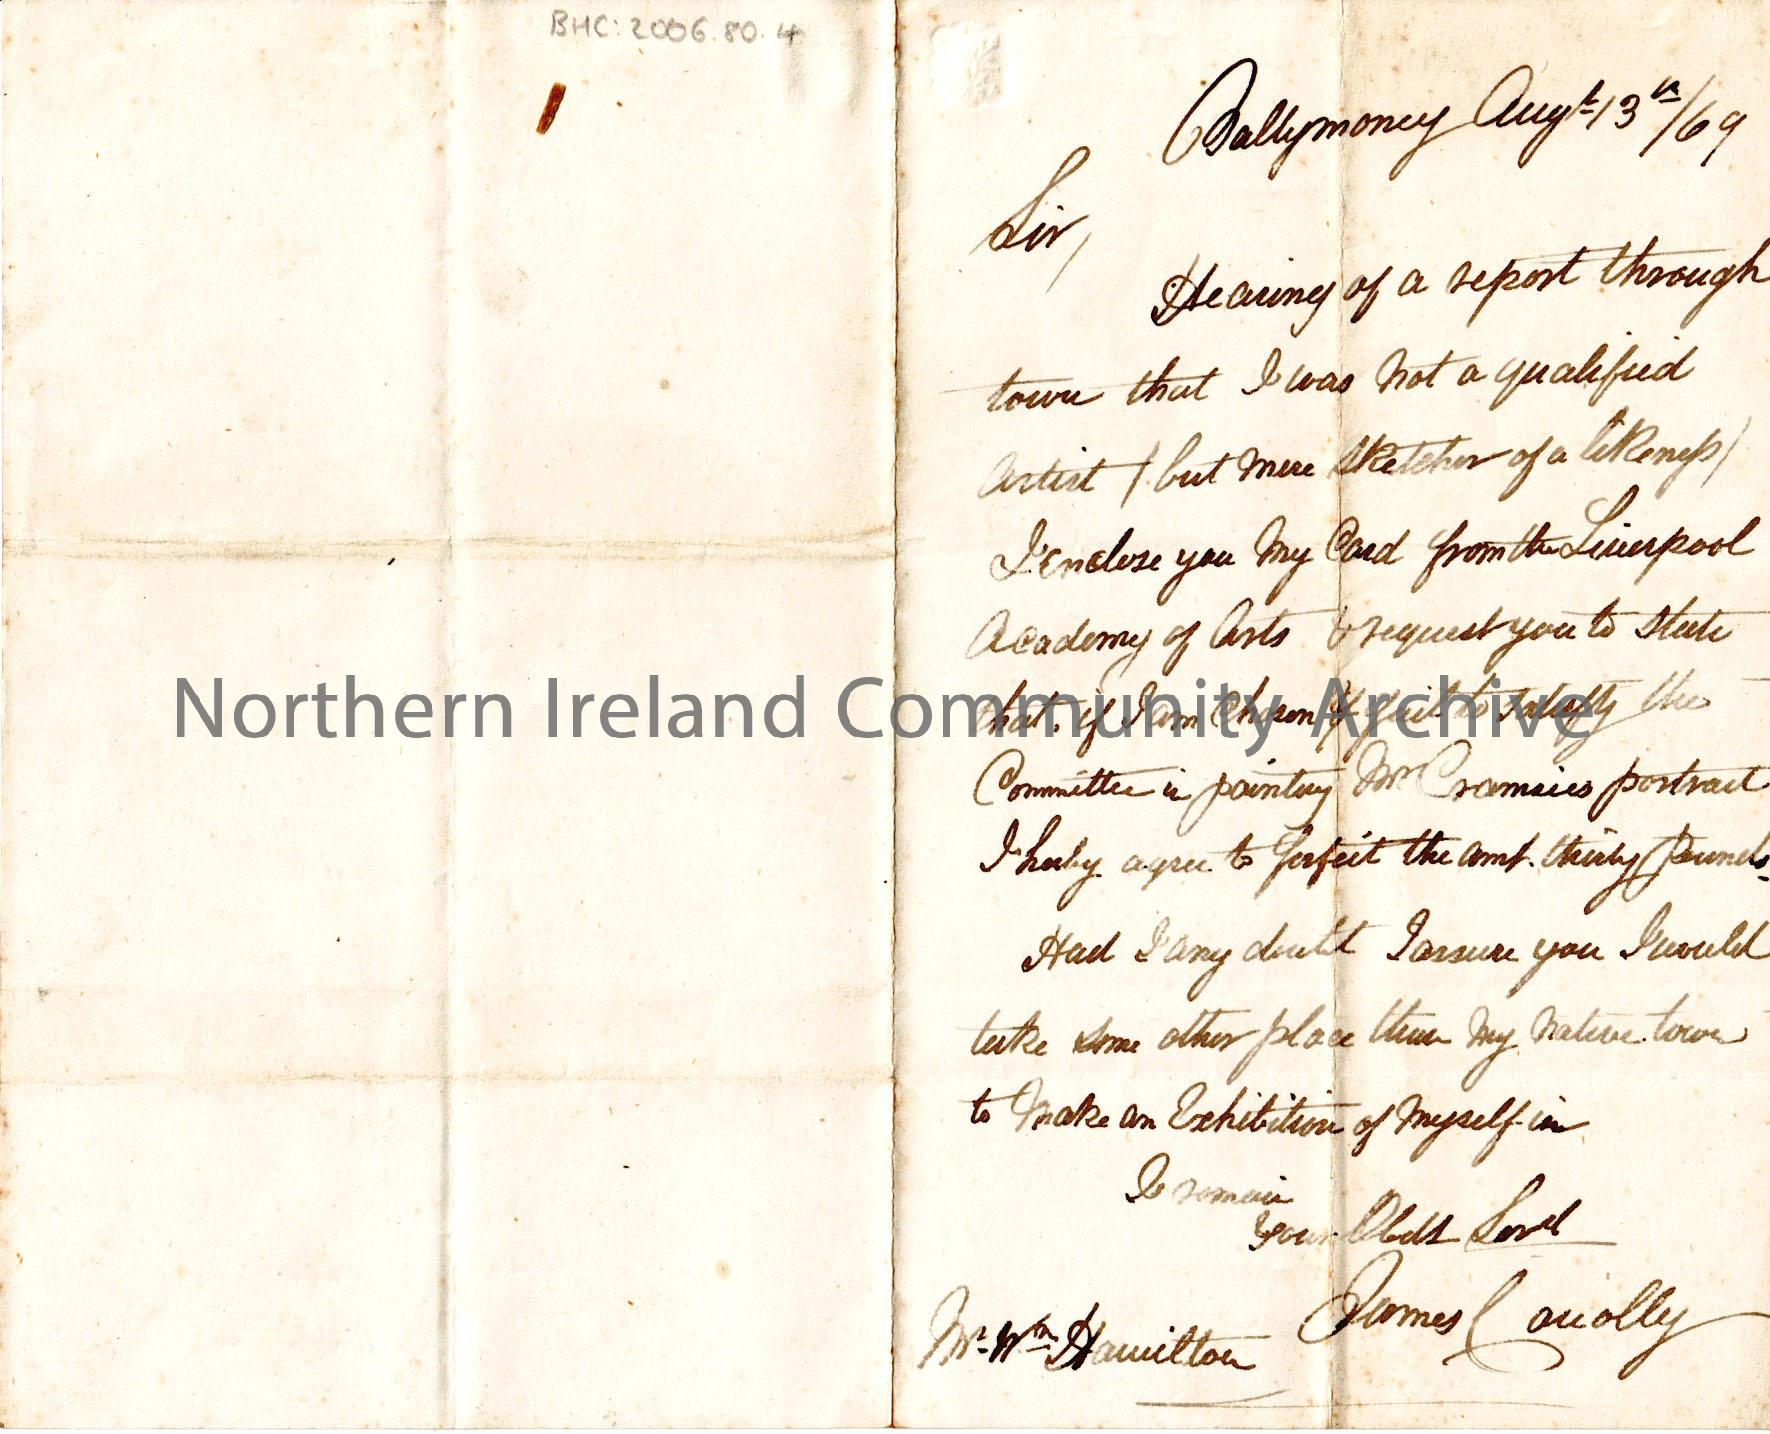 BHC: 2006.80.4
Ballymoney Augt 13th/69
Sir,
Hearing of a report through
town that I was not a qualified
Artist (but mere sketcher of a likeness)
I enclose you my Card from the Liverpool
Academy of Arts & request you to state
that, if I am chosen & fail to satisfy the
Committee in painting Mr Cramsies portrait
I herby agree to forfeit the amt. thirty pounds.
Had I any doubt I assure you I would
take some other place than my native town
to make an Exhibition of myself in
I remain
Your Obdt Servt
James Conolly
Mr. Wm Hamilton
Northern Ireland Community Archive